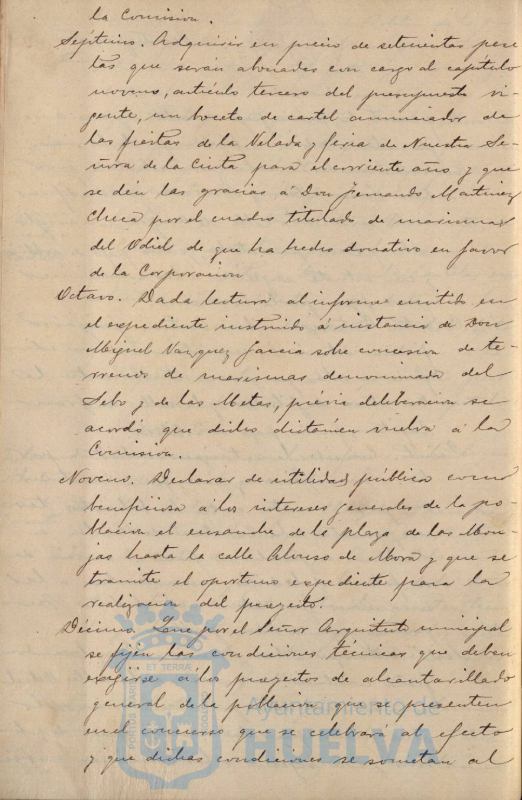 la Comision.
Septimo. Adquirir en precio de setecientas pese
tas que serán abonadas con cargo al capitulo
noveno, artículo tercero del presupuesto vi-
gente, un boceto de cartel anunciador de
las fiestas de la Velada y feria de Nuestra Se-
ñora de la Cinta para el corriente año y que
se dén las gracias á Don Fernando Martinez
Checa por el cuadro titulado de marismas
del Odiel de que ha hecho donativo en favor
de la Corporacion
Octavo. Dada lectura al informe emitido en
el expediente instruido á instancia de Don
Miguel Vazquez Garcia sobre concesion de te-
rrenos de marismas denominada del
Sebo y de las Metas, previa deliberacion se
acordó que dicho dictámen vuelva á la
Comision.
Noveno. Declarar de utilidad pública como
beneficiosa á los intereses generales de la po-
blacion el ensanche de la plaza de las Mon-
jas hasta la calle Alonso de Mora y que se
tramite el oportuno expediente para la
realizacion del proyecto.
Décimo. Que por el Señor Arquitecto municipal
se fijen las condiciones técnicas que deban
exigirse á los proyectos de alcantarillado
general de la poblacion que se presenten
en el concurso que se celebrará al efecto
y que dichas condiciones se sometan al
PORTUS MARIS ET TERRAE CUSTODIA
Ayuntamiento de
HUELVA